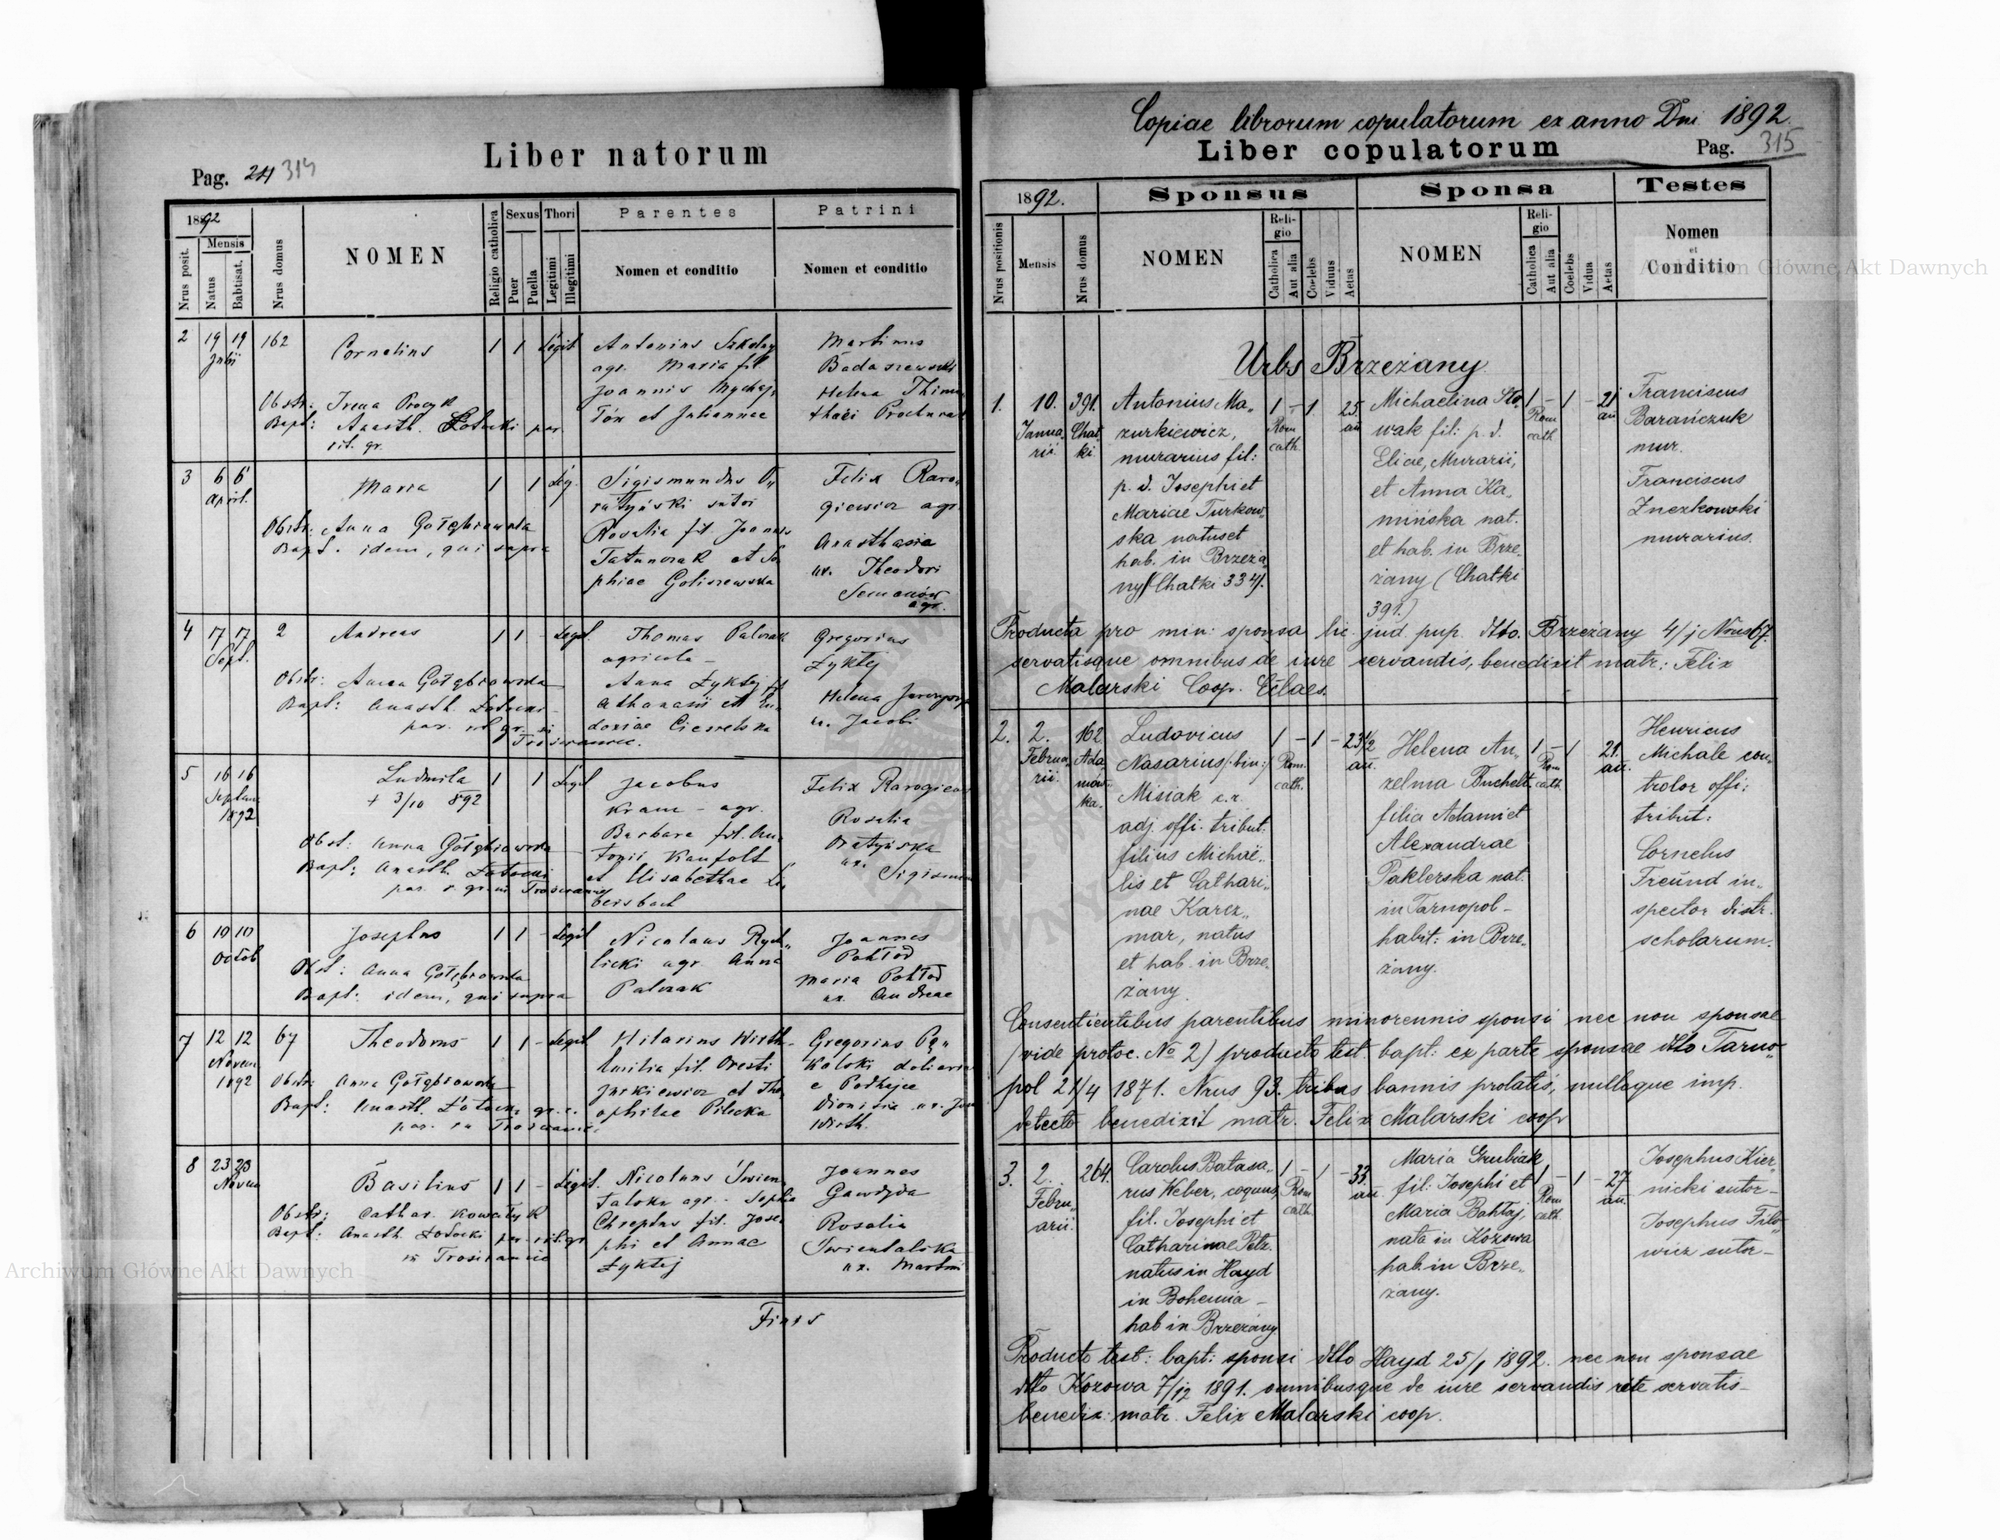 Liber natorum
Pag. 24 314
1892
Mensis
Nrus posit.
Natus
Babtisat.
Nrus domus
NOMEN
Religio catholica
Sexus
Puer
Puella
Thori
Legitimi
Illegitimi
Parentes
Nomen et conditio
Patrini
Nomen et conditio
2 19 19 162 Cornelius 1 1 Legit.
Julii
Obstr: Irena
Bapt: Anasth. Łotocki par.
rit. gr.
Antonius
agr. Maria fil.
Joannis
et Juliannae
Martinus
Helena
3 6 6 Maria 1 1 Leg.
April.
Obstr: Anna Gołębiowska
Bapt. idem, qui supra
Sigismundus
sutor
Rosalia fil. Joannis
et So
phiae Goliszewska
Felix Raro
giewicz agr.
Anasthasia
ux. Theodori
Semanów
agr.
4 17 17 2 Andreas 1 1 - Legit.
Sept.
Obstr: Anna Gołębiowska
Bapt: Anasth. Łotocki
par. rit. gr. in
Trościaniec.
Thomas Palczak
agricola -
Anna Łyktej fil.
Athanasii et Eu
doxiae
Gregorius
Łyktej
Helena
ux. Jacobi
5 16 16 Ludmila 1 1 Legit
Septem
1892
+ 3/10 892
Obst: Anna Gołębiowska
Bapt: Anasth. Łotocki
par. r. gr. in
Jacobus
Kraus - agr.
Barbara fil. An
tonii Kaufolt
et Elisabethae
Felix
Rosalia
ux.
Sigismu
6 10 10 Josephus 1 1 - Legit
Octob
Obst: Anna Gołębiowska
Bapt: idem, qui supra
Nicolaus Rych„
licki agr. Anna
Palczak
Joannes
Pokłod
Maria Pokłod
ux. Andreae
7 12 12 67 Theodorus 1 1 - Legit
Novem
1892
Obstr: Anna Gołębiowska
Bapt: Anasth. Łotocki gr. c.
par. in
Hilarius Wirth
Emilia fil. Oresti
et The
ophilae Pilecka
Gregorius
e Podhajce
Dionisia ux.
Wirth.
8 23 23 Basilius 1 1 - Legit.
Novem
Obstr: Cathar.
Bapt: Anasth. Łotocki par. rit. gr.
in
Nicolaus
agr. - Sophia
fil. Jose
phi et Annae
Łyktej
Joannes
Rosalia
ux. Martini
Finis
Copiae librorum copulatorum ex anno Dni 1892.
Liber copulatorum
Pag. 315
1892.
Nrus positionis
Mensis
Nrus domus
Sponsus
NOMEN
Religio
Catholica
Aut alia
Coelebs
Viduus
Aetas
Sponsa
NOMEN
Religio
Catholica
Aut alia
Coelebs
Vidua
Aetas
Testes
Nomen
et
Conditio
Urbs Brzeżany
1. 10. 391.
Janua„
rii
Chat„
ki.
Antonius Ma„
zurkiewicz,
murarius fil:
p. d. Josephi et
Mariae Turkow„
ska natus et
hab. in Brzeża„
ny (Chatki 334).
1 - 1 25.
Rom
cath.
an
Michaelina No„
wak fil: p. d.
Eliae, Murarii,
et Anna Ka„
mińska nat.
et hab. in Brze„
żany (Chatki
391.)
1 - 1 - 21
Rom
cath.
an
Franciscus
Barańczuk
mur.
Franciscus
Znczkowski
murarius.
Producta pro min: sponsa lic. jud. pup. dtto. Brzeżany 4/1 Nrus 67.
servatisque omnibus de iure servandis, benedixit matr: Felix
Malarski Coop. Eccles.
2. 2. 162
Februa„
rii.
Ada
mów„
ka.
Ludovicus
Nasarius /:bin:/
Misiak c. r.
adj. offi. tribut.
filius Michaë„
lis et Cathari„
nae Karcz„
mar, natus
et hab. in Brze„
żany.
1 - 1 - 23 1/2
Rom.
cath.
an.
Helena An„
zelma Buchelt
filia Adami et
Alexandrae
Paklerska nat.
in Tarnopol -
habit: in Brze„
żany.
1 - 1 21.
Rom
cath.
an.
Henricus
Michale con„
trolor offi:
tribut:
Cornelus
Freünd in„
spector distr.
scholarum.
Consentientibus parentibus minorennis sponsi nec non sponsae
(vide protoc. No 2) producto test. bapt: ex parte sponsae dtto Tarno„
pol 21/4 1871. Nrus 93. tribus bannis prolatis, nulloque imp.
detecto benedixit matr. Felix Malarski coop
3. 2. 264.
Febru„
arii.
Carolus Batasa„
rus Weber, coquus,
fil. Josephi et
Catharinae Petz.
natus in Hayd
in Bohemia -
hab in Brzeżany
1 - 1 - 33.
Rom
cath.
an.
Maria Grubiak
fil: Josephi et
Maria Bahtaj,
nata in Kozowa
hab in Brze„
żany.
1 - 1 - 27.
Rom
cath.
an.
Josephus Kier„
nicki sutor -
Josephus Filo„
wicz sutor -
Producto test: bapt: sponsi dtto Hayd 25/1 1892. nec non sponsae
dtto Kozowa 7/12 1891. omnibusque de iure servandis rite servatis -
benedix: matr. Felix Malarski coop.
Archiwum Główne Akt Dawnych
Archiwum Główne Akt Dawnych